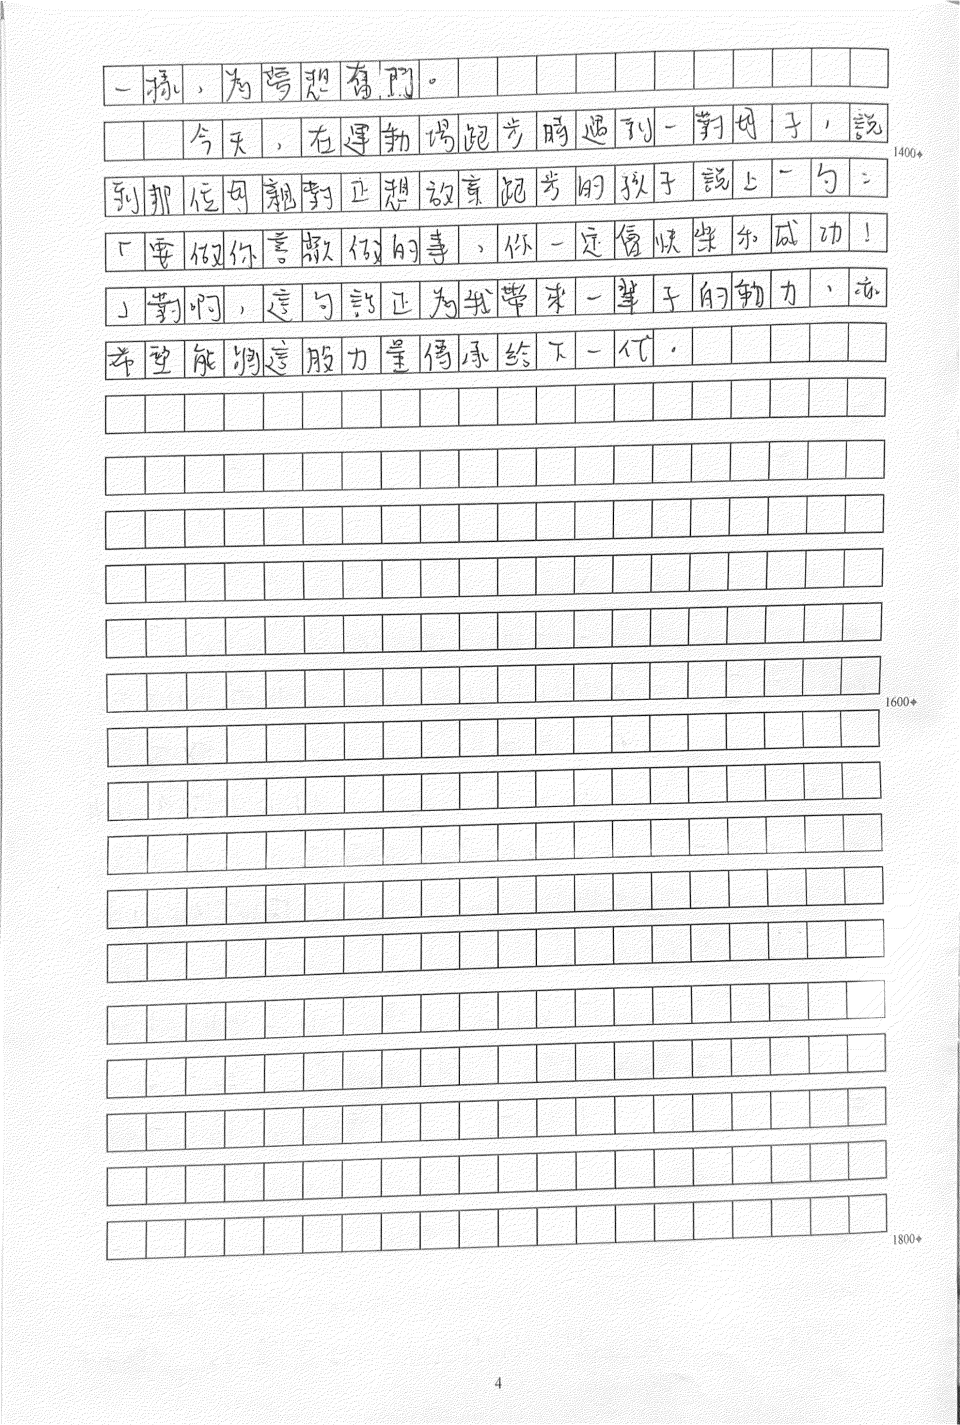 一樣，為夢想奮鬥。
今天，在運動場跑步時遇到一對母子，說
1400
到那位母親對正想放棄跑步的孩子說上一句：
「要做你喜歡做的事，你一定會快樂和成功！
」對啊，這句話正為我帶來一輩子的動力，亦
希望能夠這股力量傳承給下一代。
1600
1800
4